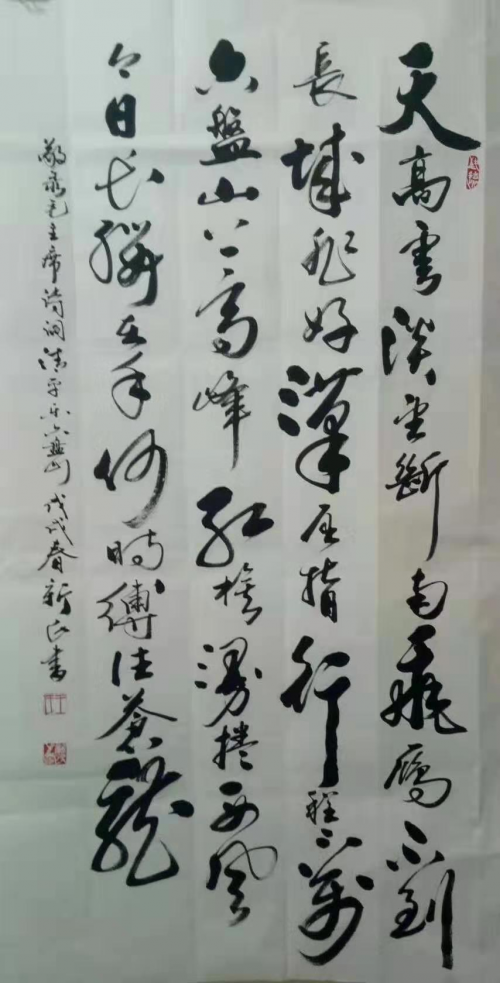 天高雲淡望斷南飛雁不到
長城非好漢屈指行程二萬
六盤山上高峰紅旗漫捲西風
今日長纓在手何時縛住蒼龍
敬录毛主席诗词清平乐六盘山戊戌春新民書